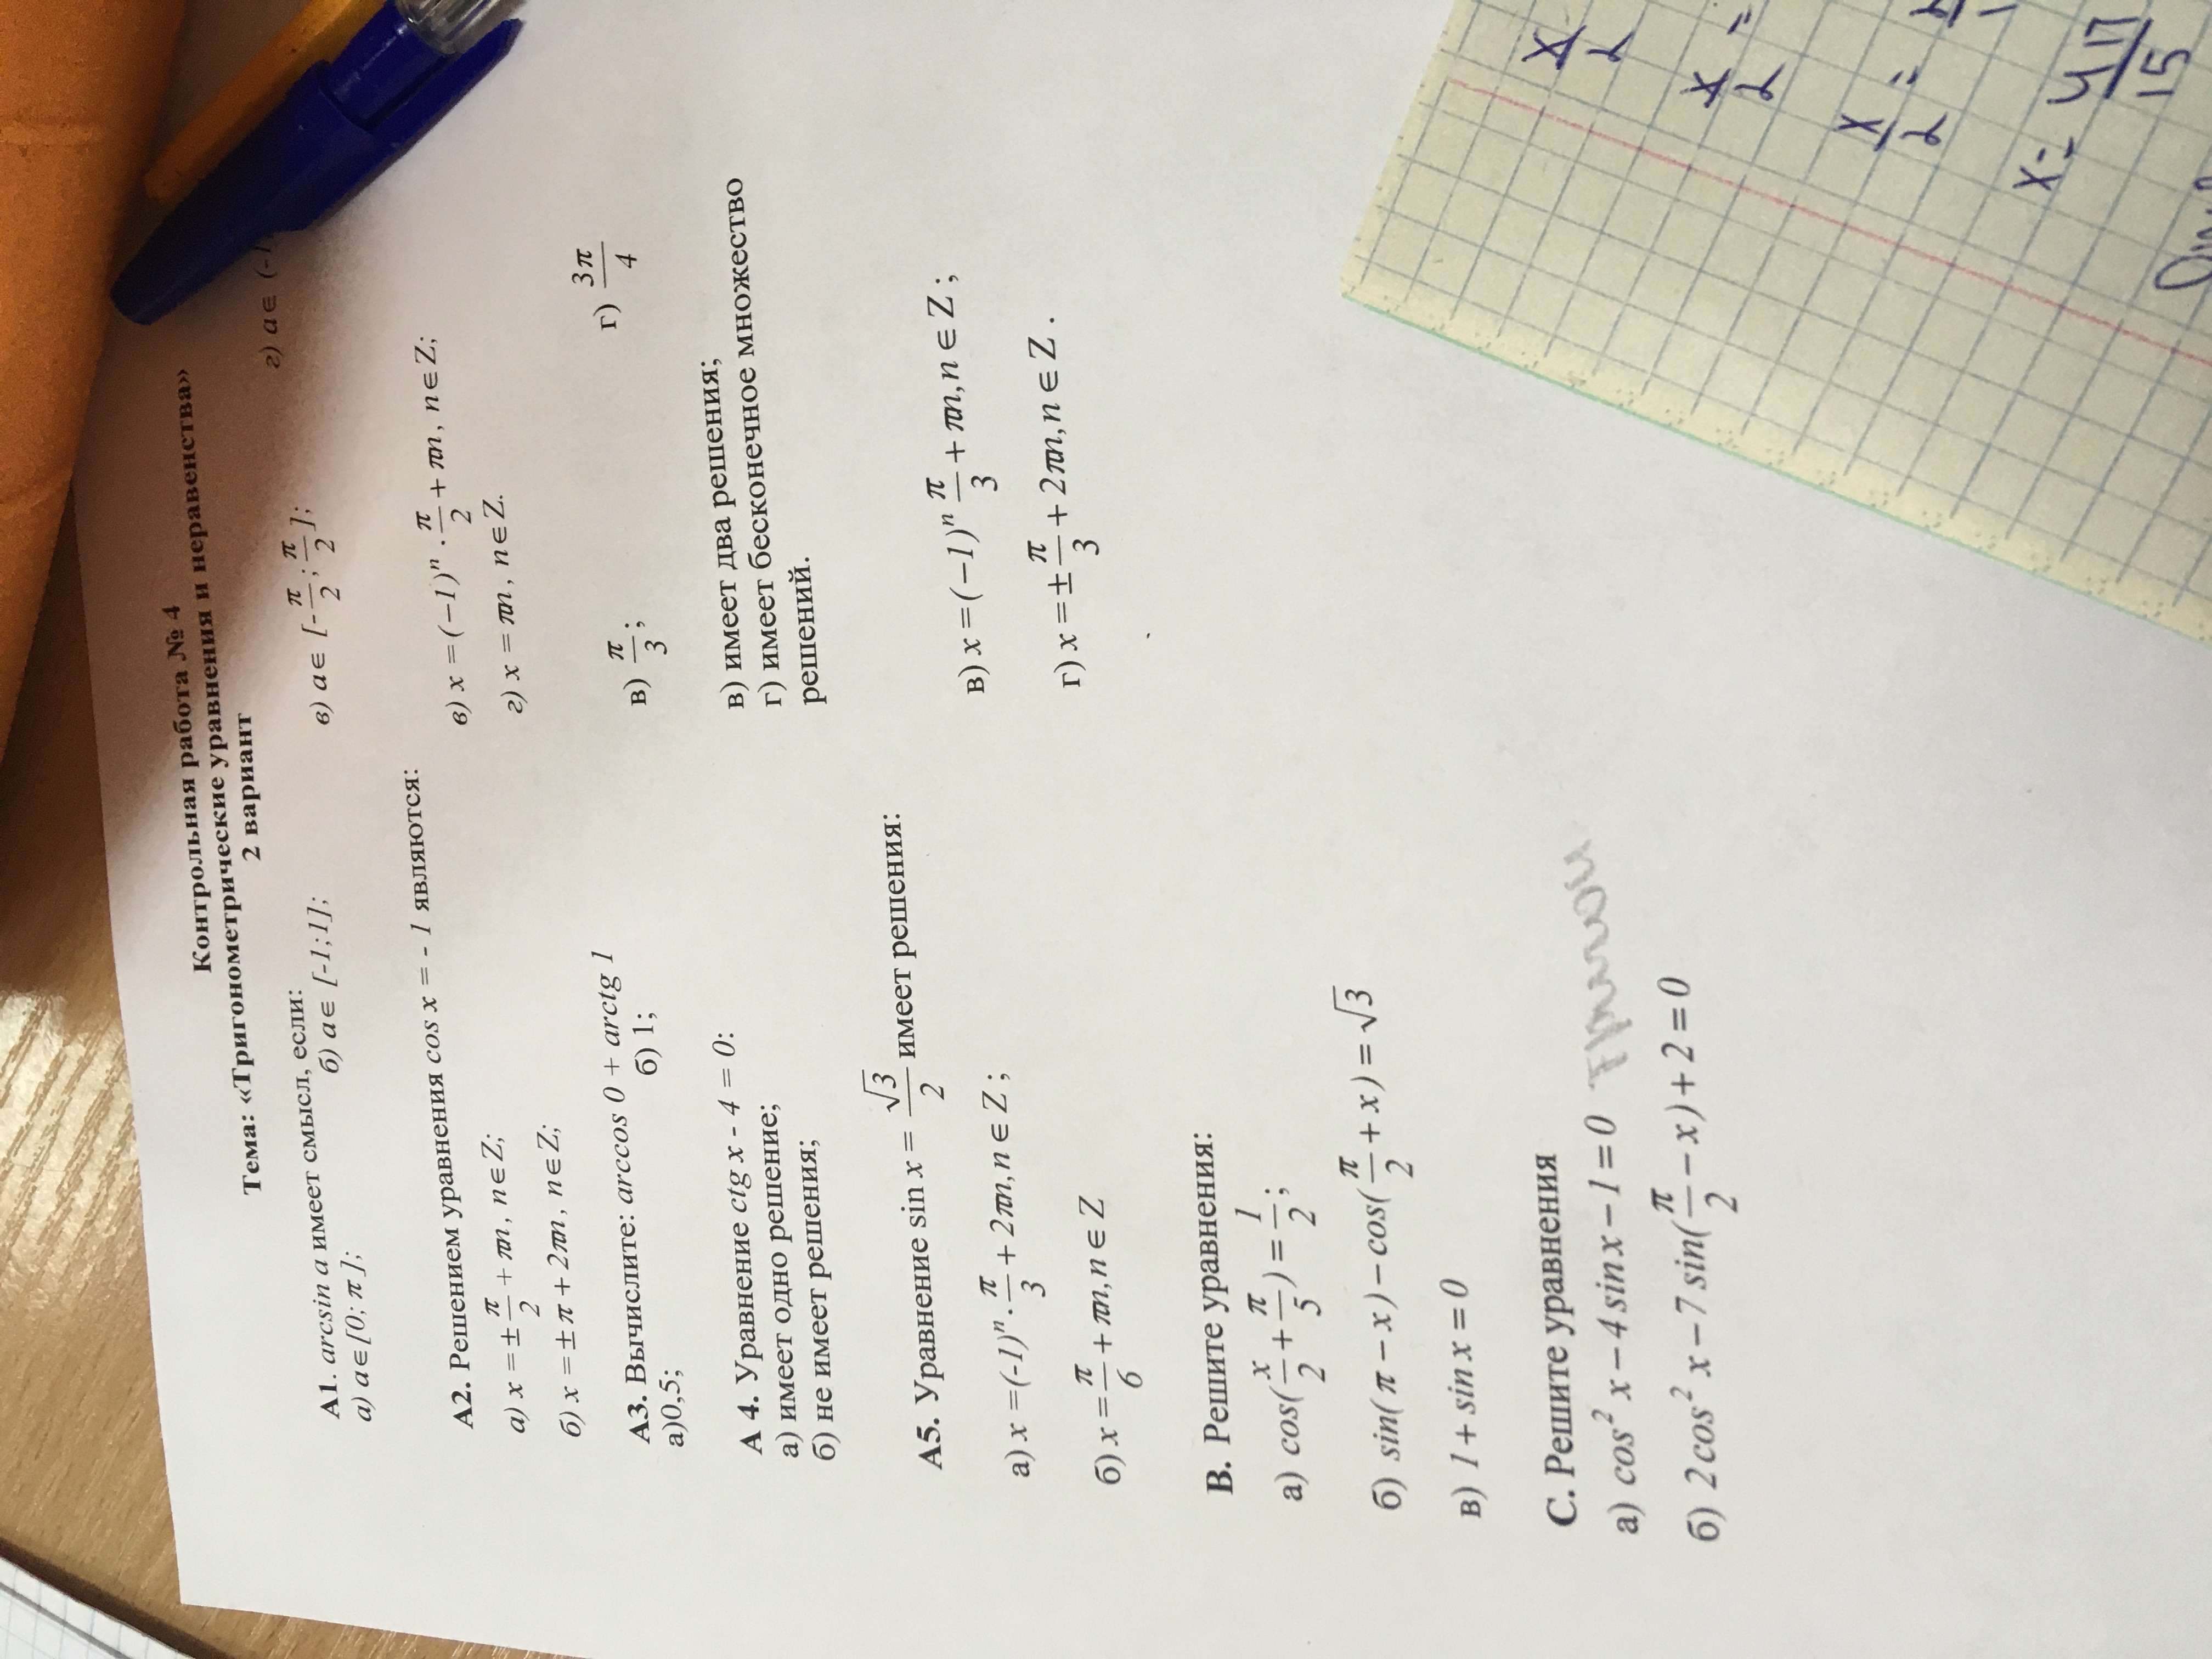 Контрольная работа № 4
Тема: «Тригонометрические уравнения и неравенства»
2 вариант
А1. arcsin a имеет смысл, если:
а) a∈[0; π]; б) a∈ [-1;1]; в) a∈ [-π/2; π/2]; г) a∈ (-1
А2. Решением уравнения cos x = - 1 являются:
а) x = ± π/2 + πn, n∈Z; в) x = (−1)ⁿ · π/2 + πn, n∈Z;
б) x = ± π + 2πn, n∈Z; г) x = πn, n∈Z.
А3. Вычислите: arccos 0 + arctg 1
а)0,5; б) 1; в) π/3; г) 3π/4
А 4. Уравнение ctg x - 4 = 0:
а) имеет одно решение; в) имеет два решения;
б) не имеет решения; г) имеет бесконечное множество
решений.
А5. Уравнение sin x = √3/2 имеет решения:
а) x = (-1)ⁿ · π/3 + 2πn, n∈Z; в) x = (−1)ⁿ π/3 + πn, n∈Z;
б) x = π/6 + πn, n∈Z г) x = ± π/3 + 2πn, n∈Z.
В. Решите уравнения:
а) cos(x/2 + π/5) = 1/2;
б) sin(π − x) − cos(π/2 + x) = √3
в) 1 + sin x = 0
С. Решите уравнения
а) cos² x − 4 sin x − 1 = 0
б) 2cos² x − 7 sin(π/2 − x) + 2 = 0
x/2
x/2 =
x/2 =
x = 4 17/15